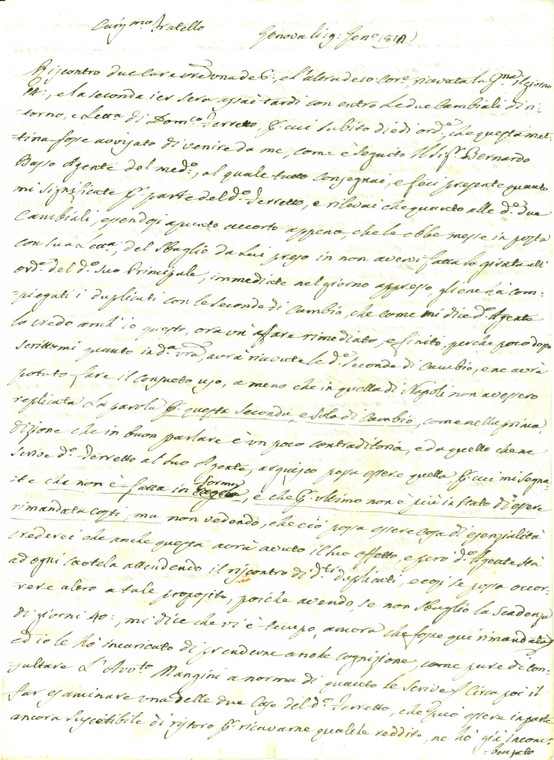 Cariss.mo Fratello Genova li 19: Gen.o 1810
Riscontro due Care vre una de 6:, e l'altra de 10 Cor.e, ricevuta la p.ma il giorno
e la seconda ier sera assai tardi con entro le due Cambiali di ri-
-torno, e Lett.a di Dom.co Ferretto, p. cui subito diedi ord.e, che questa mat-
-tina fosse avvisato di venire da me, come è seguito Il Sig.r Bernardo
Basso Agente del med.o, al quale tutto consegnai, e feci presente quanto
mi significate p. parte del d.o Ferretto, e rilevai che quanto alle d.e due
Cambiali, essendosi apunto accorto appena, che le ebbe messe in posta
con sua Lett.a, del Sbaglio da Lui preso in non avervi fatta la girata all'
ord.e del d.o Suo Principale, immediate nel giorno appresso gliene hà com-
-piegati i duplicati con le seconde di Cambio, che come mi dice d.o Agente
lo credo anch'io questo, ora un affare rimediato, e finito, perche poco dopo
scrittomi quanto in d.a vra, avrà ricevute le d.e Seconde di Cambio, e ne avrà
potuto fare il consueto uso, a meno che in quella di Napoli non avessero
replicata La parola p. questa Seconda, e Sola di Cambio, come nella prima,
dizione che in buon parlare è un poco contraditoria, e da quello che ne
Scrive d.o Ferretto al suo Agente, arguisco possa essere quella p. cui mi segna-
-te che non è fatta in forma, e che p. ultimo non è più in stato di essere
rimandata costì, ma non vedendo, che ciò possa essere cosa di essenzialità
crederei che anche questa avrà avuto il suo effetto, e però d.o Agente stà
ad ogni cautela attendendo il riscontro di d.ti duplicati, e così se possa occor-
-rere altro a tale proposito, poiche avendo se non sbaglio la Scadenza
di giorni 40:, mi dice che vi è tempo, ancora che fosse quì rimandata
ed io le hò incaricato di prenderne anche cognizione, come pure di con-
-sultare L'Avv.to Mangini a norma di quanto le Scrive. Circa poi il
far esaminare una delle due Case del d.o Ferretto, che può essere in parte
ancora suscettibile di ristoro p. ricavarne qualche reddito, ne hò già incom-
-benzato